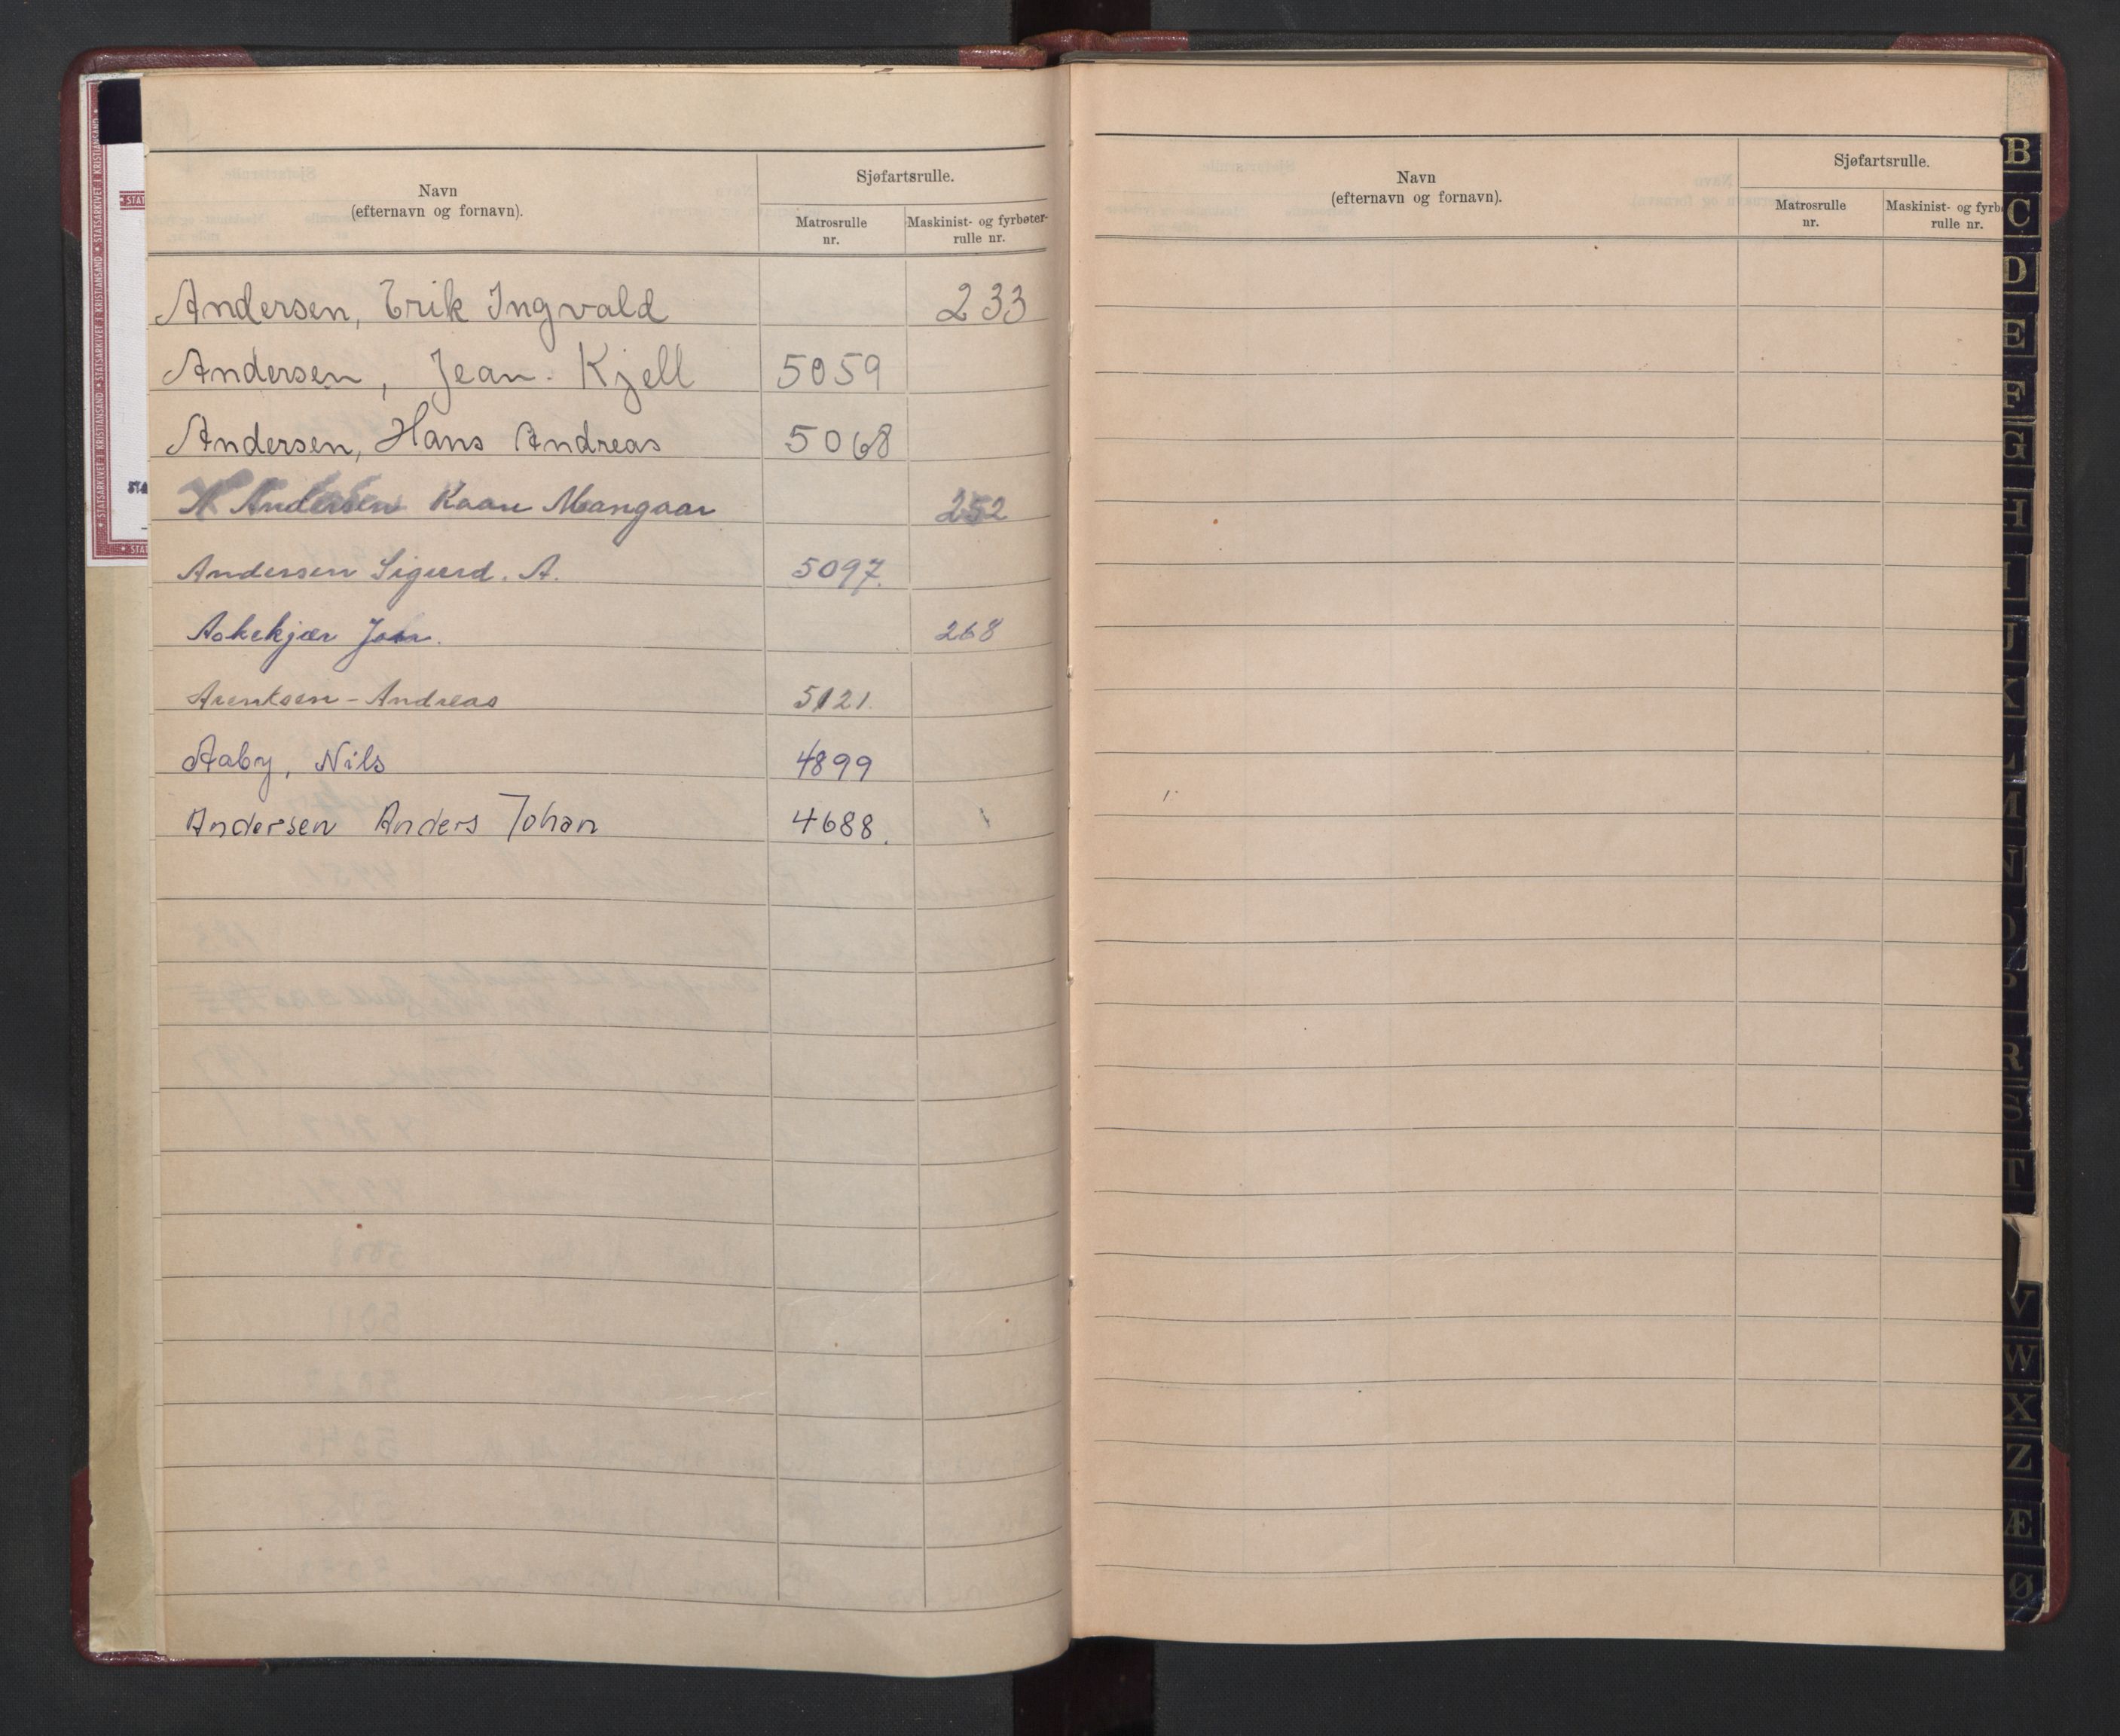 STATSARKIVET I KRISTIANSAND
Navn
(efternavn og fornavn).
Sjøfartsrulle.
Matrosrulle
nr.
Maskinist- og fyrbøter-
rulle nr.
Andersen, Erik Ingvald 233
Andersen, Jean. Kjell 5059
Andersen, Hans Andreas 5068
Andersen Kaare 252
Andersen Sigurd. A. 5097.
268
Arentsen - Andreas 5121.
Aaby, Nils 4899
Andersen Anders Johan 4688.
Navn
(efternavn og fornavn).
Sjøfartsrulle.
Matrosrulle
nr.
Maskinist- og fyrbø
rulle nr.
B
C
D
E
F
G
H
I
J
K
L
M
N
O
P
R
S
T
V
W
X
Z
Æ
Ø